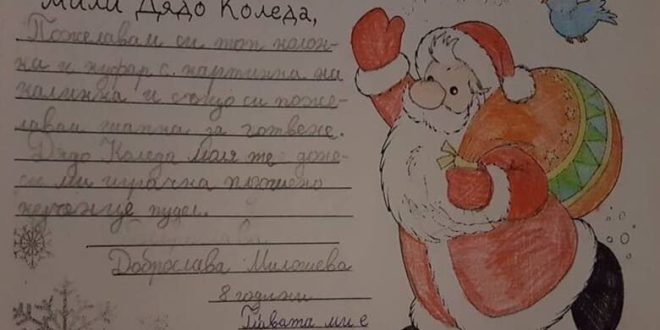 Мили Дядо Коледа,
Пожелавам си тон колон-
ка и куфар с картинка на
калинка и също си поже-
лавам шапка за готвене.
Дядо Коледа моля те доне-
се ми играчка плюшено
кученце пудел.
Доброслава Милошева
8 години
ми е